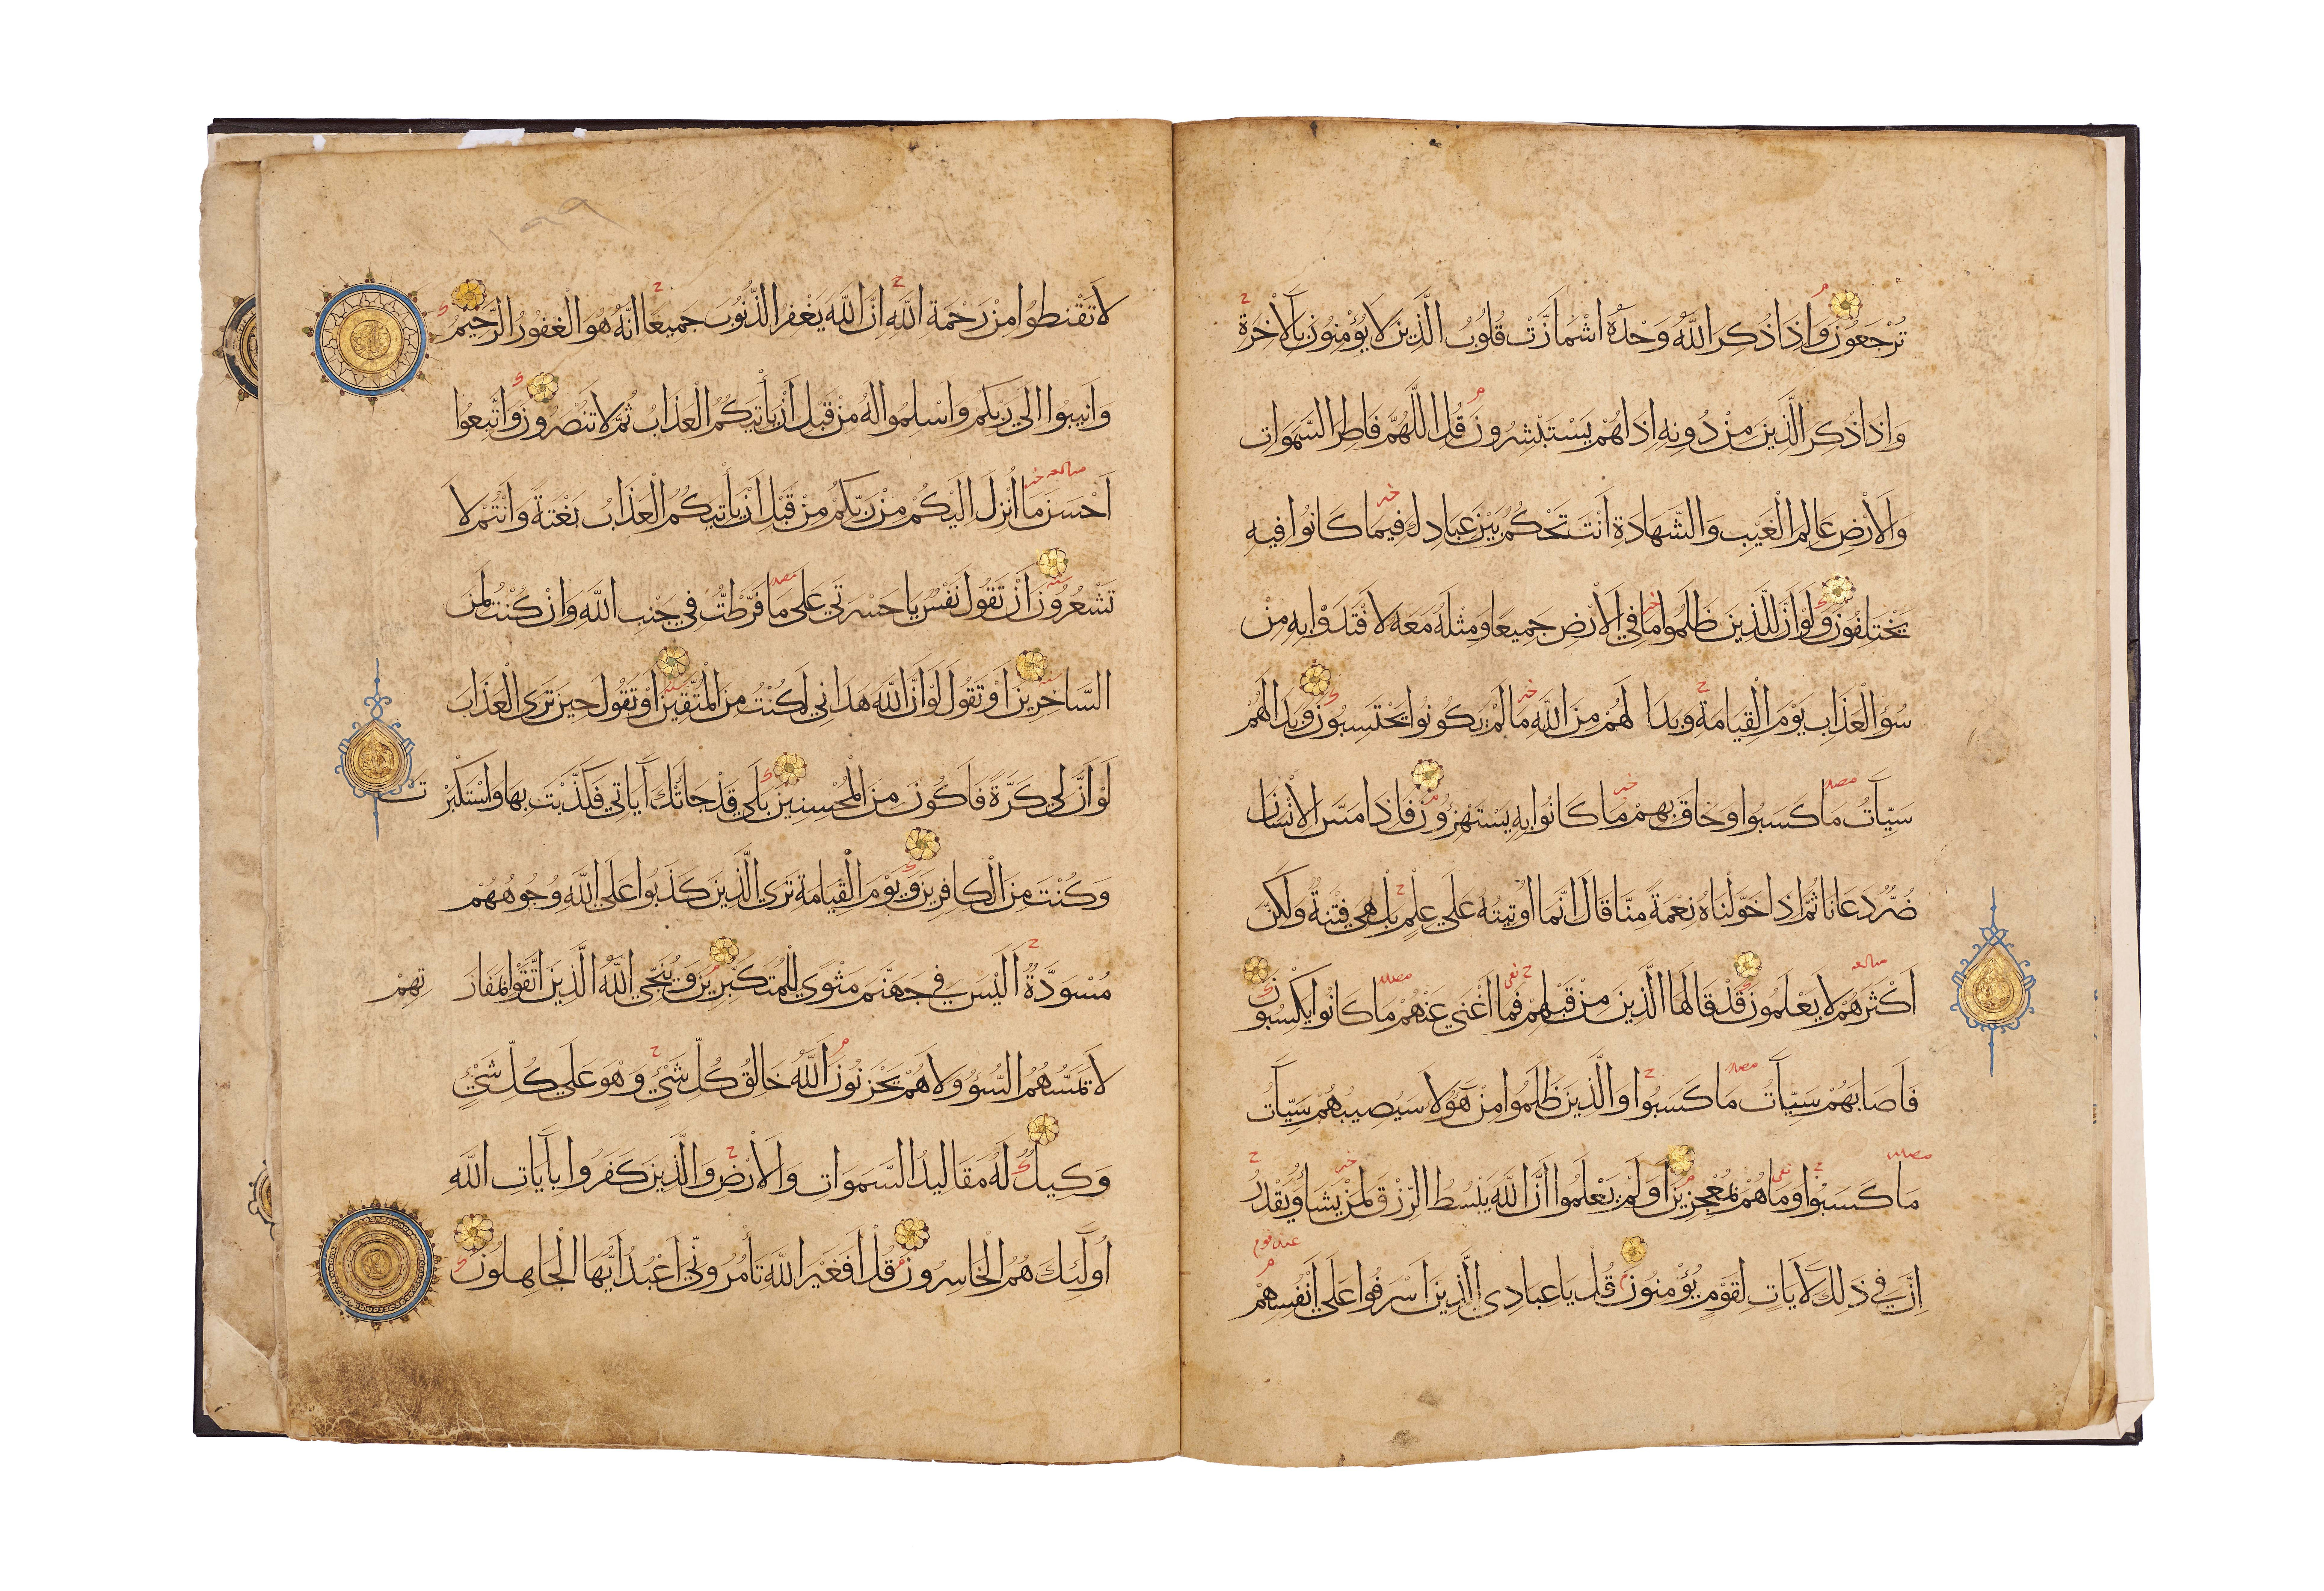 تُرْجَعُونَ وَإِذَا ذُكِرَ اللَّهُ وَحْدَهُ اشْمَأَزَّتْ قُلُوبُ الَّذِينَ لَا يُؤْمِنُونَ بِالْآخِرَةِ
وَإِذَا ذُكِرَ الَّذِينَ مِنْ دُونِهِ إِذَا هُمْ يَسْتَبْشِرُونَ قُلِ اللَّهُمَّ فَاطِرَ السَّمَوَاتِ
وَالْأَرْضِ عَالِمَ الْغَيْبِ وَالشَّهَادَةِ أَنْتَ تَحْكُمُ بَيْنَ عِبَادِكَ فِيمَا كَانُوا فِيهِ
يَخْتَلِفُونَ وَلَوْ أَنَّ لِلَّذِينَ ظَلَمُوا مَا فِي الْأَرْضِ جَمِيعًا وَمِثْلَهُ مَعَهُ لَافْتَدَوْا بِهِ مِنْ
سُوءِ الْعَذَابِ يَوْمَ الْقِيَامَةِ وَبَدَا لَهُمْ مِنَ اللَّهِ مَا لَمْ يَكُونُوا يَحْتَسِبُونَ وَبَدَا لَهُمْ
سَيِّآتُ مَا كَسَبُوا وَحَاقَ بِهِمْ مَا كَانُوا بِهِ يَسْتَهْزِؤُنَ فَإِذَا مَسَّ الْإِنْسَانَ
ضُرٌّ دَعَانَا ثُمَّ إِذَا خَوَّلْنَاهُ نِعْمَةً مِنَّا قَالَ إِنَّمَا أُوتِيتُهُ عَلَى عِلْمٍ بَلْ هِيَ فِتْنَةٌ وَلَكِنَّ
أَكْثَرَهُمْ لَا يَعْلَمُونَ قَدْ قَالَهَا الَّذِينَ مِنْ قَبْلِهِمْ فَمَا أَغْنَى عَنْهُمْ مَا كَانُوا يَكْسِبُونَ
فَأَصَابَهُمْ سَيِّآتُ مَا كَسَبُوا وَالَّذِينَ ظَلَمُوا مِنْ هَؤُلَا سَيُصِيبُهُمْ سَيِّآتُ
مَا كَسَبُوا وَمَا هُمْ بِمُعْجِزِينَ أَوَلَمْ يَعْلَمُوا أَنَّ اللَّهَ يَبْسُطُ الرِّزْقَ لِمَنْ يَشَاءُ وَيَقْدِرُ
إِنَّ فِي ذَلِكَ لَآيَاتٍ لِقَوْمٍ يُؤْمِنُونَ قُلْ يَا عِبَادِيَ الَّذِينَ أَسْرَفُوا عَلَى أَنْفُسِهِمْ
لَا تَقْنَطُوا مِنْ رَحْمَةِ اللَّهِ إِنَّ اللَّهَ يَغْفِرُ الذُّنُوبَ جَمِيعًا إِنَّهُ هُوَ الْغَفُورُ الرَّحِيمُ
وَأَنِيبُوا إِلَى رَبِّكُمْ وَأَسْلِمُوا لَهُ مِنْ قَبْلِ أَنْ يَأْتِيَكُمُ الْعَذَابُ ثُمَّ لَا تُنْصَرُونَ وَاتَّبِعُوا
أَحْسَنَ مَا أُنْزِلَ إِلَيْكُمْ مِنْ رَبِّكُمْ مِنْ قَبْلِ أَنْ يَأْتِيَكُمُ الْعَذَابُ بَغْتَةً وَأَنْتُمْ لَا
تَشْعُرُونَ أَنْ تَقُولَ نَفْسٌ يَا حَسْرَتَى عَلَى مَا فَرَّطْتُ فِي جَنْبِ اللَّهِ وَإِنْ كُنْتُ لَمِنَ
السَّاخِرِينَ أَوْ تَقُولَ لَوْ أَنَّ اللَّهَ هَدَانِي لَكُنْتُ مِنَ الْمُتَّقِينَ أَوْ تَقُولَ حِينَ تَرَى الْعَذَابَ
لَوْ أَنَّ لِي كَرَّةً فَأَكُونَ مِنَ الْمُحْسِنِينَ بَلَى قَدْ جَاءَتْكَ آيَاتِي فَكَذَّبْتَ بِهَا وَاسْتَكْبَرْتَ
وَكُنْتَ مِنَ الْكَافِرِينَ وَيَوْمَ الْقِيَامَةِ تَرَى الَّذِينَ كَذَبُوا عَلَى اللَّهِ وُجُوهُهُمْ
مُسْوَدَّةٌ أَلَيْسَ فِي جَهَنَّمَ مَثْوًى لِلْمُتَكَبِّرِينَ وَيُنَجِّي اللَّهُ الَّذِينَ اتَّقَوْا بِمَفَازَتِهِمْ
لَا يَمَسُّهُمُ السُّوءُ وَلَا هُمْ يَحْزَنُونَ اللَّهُ خَالِقُ كُلِّ شَيْءٍ وَهُوَ عَلَى كُلِّ شَيْءٍ
وَكِيلٌ لَهُ مَقَالِيدُ السَّمَوَاتِ وَالْأَرْضِ وَالَّذِينَ كَفَرُوا بِآيَاتِ اللَّهِ
أُولَئِكَ هُمُ الْخَاسِرُونَ قُلْ أَفَغَيْرَ اللَّهِ تَأْمُرُونِّي أَعْبُدُ أَيُّهَا الْجَاهِلُونَ